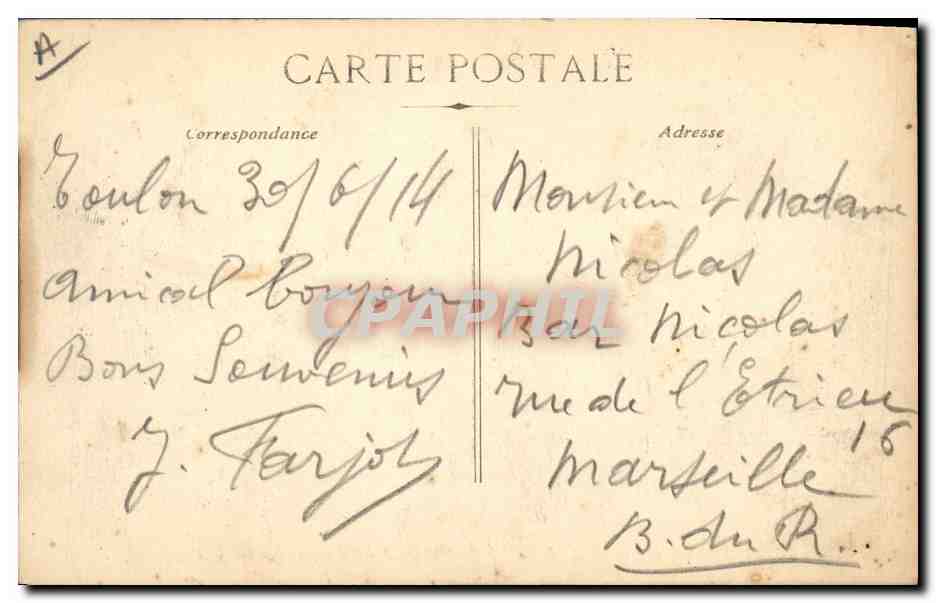 A
CARTE POSTALE
Correspondance
Toulon 30/6/14
amical bonjour
Bons Souvenirs
J. Farjob
Adresse
Monsieur et Madame
Nicolas
Bar Nicolas
rue de l'Etrieu
16
Marseille
B. du R...
CPAPHIL